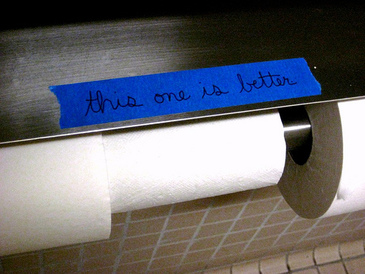 this one is better